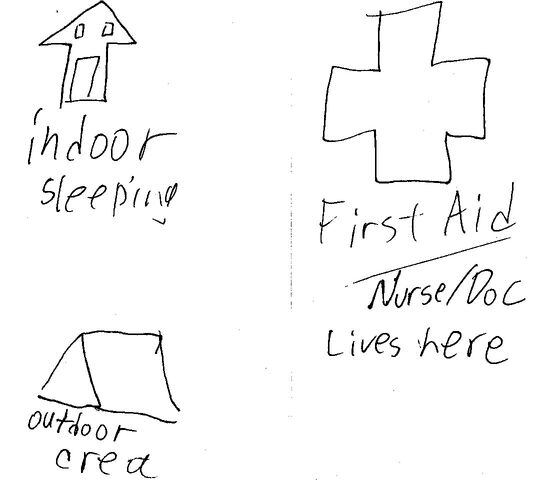 indoor
sleeping
outdoor
area
First Aid
Nurse/Doc
Lives here